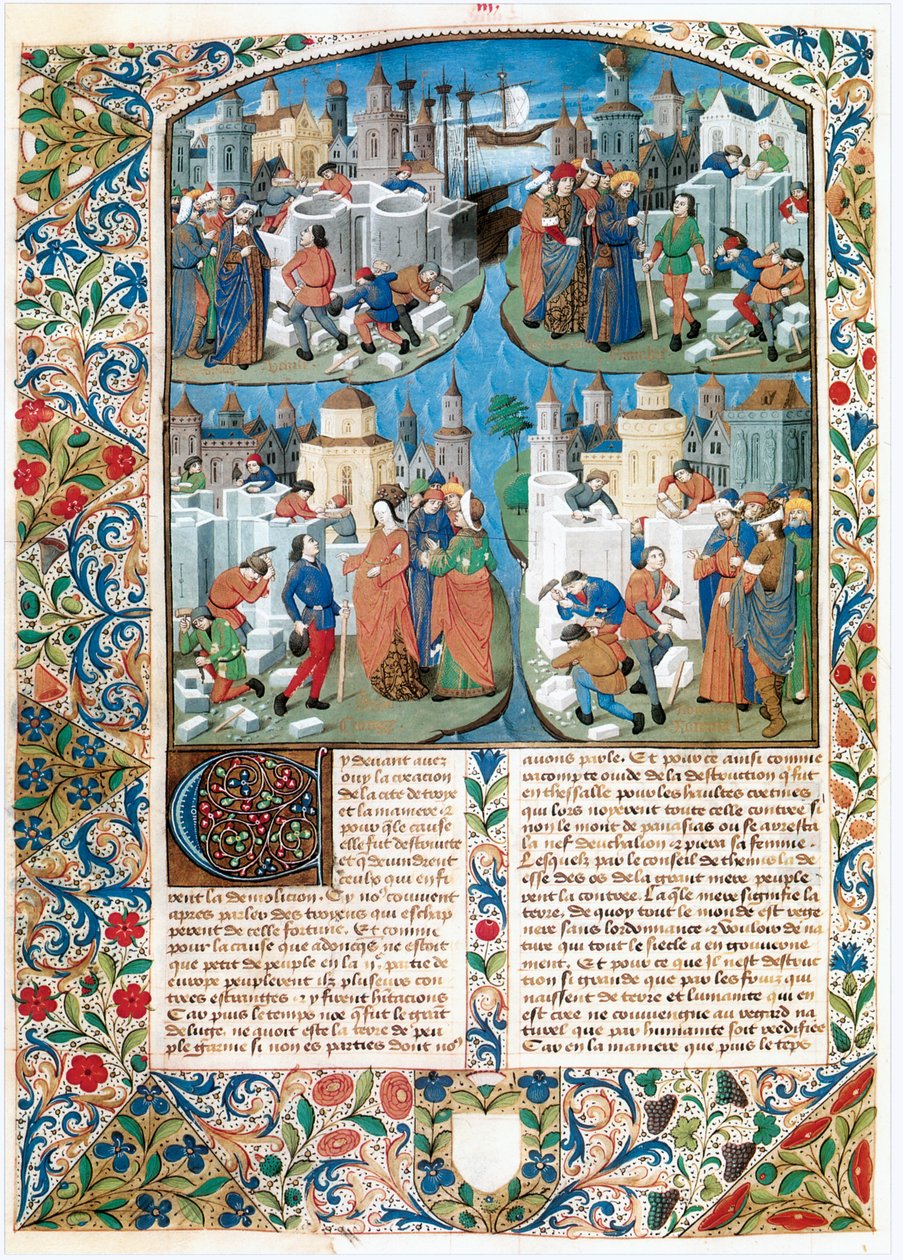 m.
Venise
Cartage
Romme
Cy deuant auez
ouy la creation
de la cite de troye
et la maniere ⁊
pour q̃le cause
elle fut destruitte
et q̃ deuindrent
ceulx qui en fi
rent la demolicion. Cy no᷒ conuient
apres parler des troyens qui eschap
perent de celle fortune. Et comme
pour la cause que adoncq̃s ne estoit
que petit de peuple en la ij.ᵉ partie de
europe peuplerent ilz pluseurs con
trees estranges. ⁊ y firent hitacions
Car puis le temps noe q̃ fut le grãt
deluge, ne auoit este la terre de peu
ple garnie si non es parties dont no᷒
auons parle. Et pour ce ainsi comme
racompte ouide de la destruction q̃ fut
en thessalle pour les haultes cretines
qui lors noyerent toute celle contree si
non le mont de panasias ou se arresta
la nef deucalion ⁊ pirra sa femme.
Lesquelz par le conseil de themis la de
esse des os de la grant mere peuple
rent la contree. Laq̃le mere signifie la
terre, de quoy tout le monde est rege
nere sans lordonnance ⁊ vouloir de na
ture qui tout le siecle a en gouuerne
ment. Et pour ce que Il nest destruc
tion si grande que par les fruiz qui
naissent de terre et lumanite qui en
est cree ne conuiengne au regard na
turel que par humanite soit reedifiee
Car en la maniere que puis le tẽps